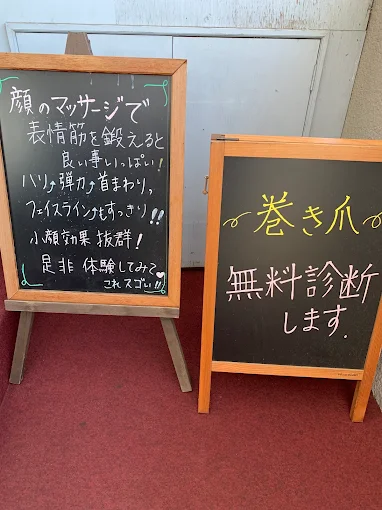 顔のマッサージで
表情筋を鍛えると
良い事いっぱい!
ハリ↗弾力↗首まわり、
フェイスラインもすっきり!!
小顔効果抜群!
是非 体験してみて
これスゴい!!
巻き爪
無料診断
します.